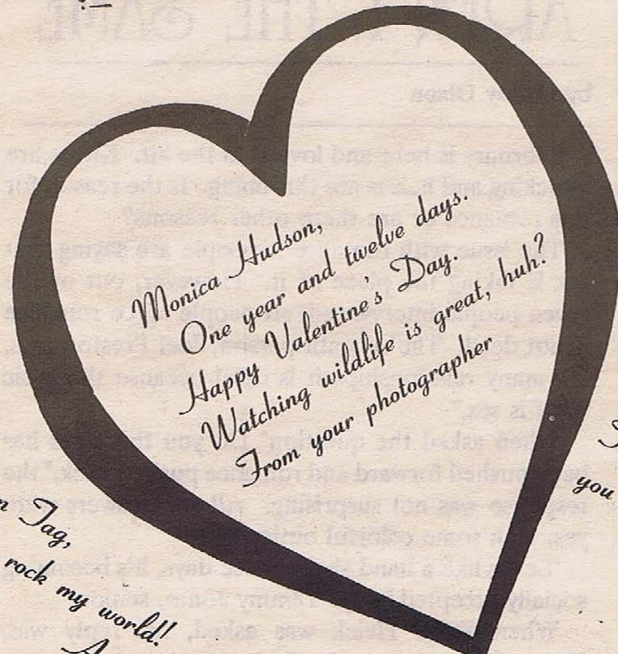 Monica Hudson,
One year and twelve days.
Happy Valentine's Day.
Watching wildlife is great, huh?
From your photographer
you
Tag,
rock my world!